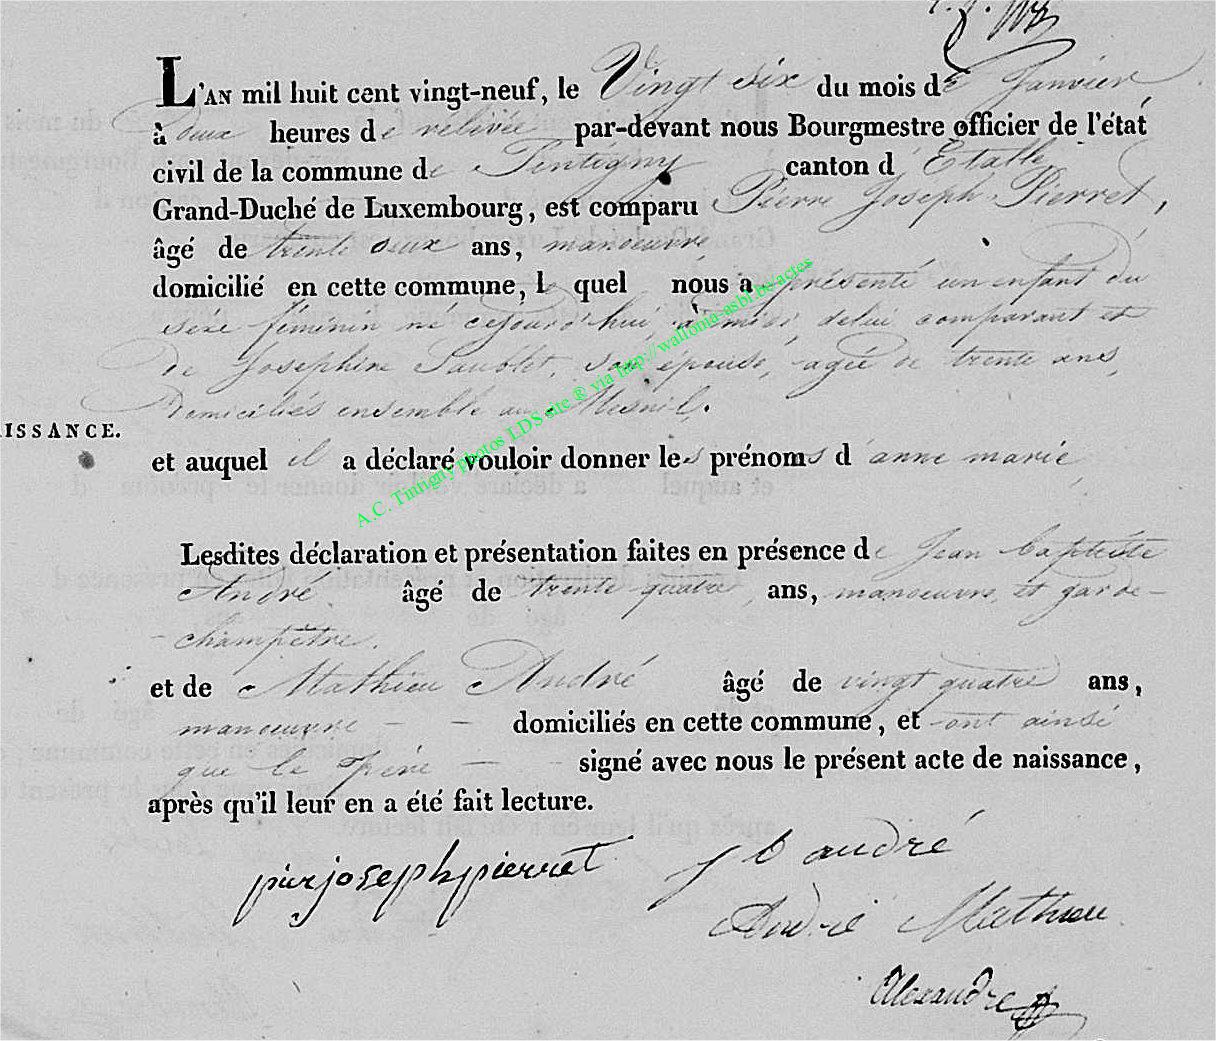 L'AN mil huit cent vingt-neuf, le Vingt six du mois de Janvier
à deux heures de relevée par-devant nous Bourgmestre officier de l'état
civil de la commune de Tintigny canton d'Etalle
Grand-Duché de Luxembourg, est comparu Pierre Joseph Pierret,
âgé de trente deux ans, manoeuvre
domicilié en cette commune, lequel nous a présenté un enfant du
sexe féminin né cejourd'hui, à midi, delui comparant et
de Josephine, son épouse, agée de trente ans,
domiciliés ensemble au Mesnil.
ISSANCE.
et auquel il a déclaré vouloir donner les prénoms d'anne marie
Lesdites déclaration et présentation faites en présence de Jean baptiste
André âgé de trente quatre ans, manoeuvre, et garde-
-champêtre.
et de Mathieu André âgé de vingt quatre ans,
manoeuvre - - domiciliés en cette commune, et ont ainsi
que le père - - signé avec nous le présent acte de naissance,
après qu'il leur en a été fait lecture.
pierjosephpierret
J b andré
André Mathieu
Alexandre
A.C. Tintigny photos LDS site ® via http://wallonia-asbl.be/actes